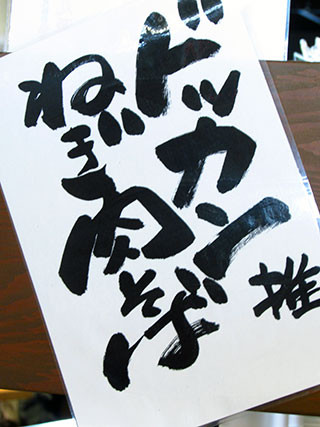 ドッカン
ねぎ肉そば
推